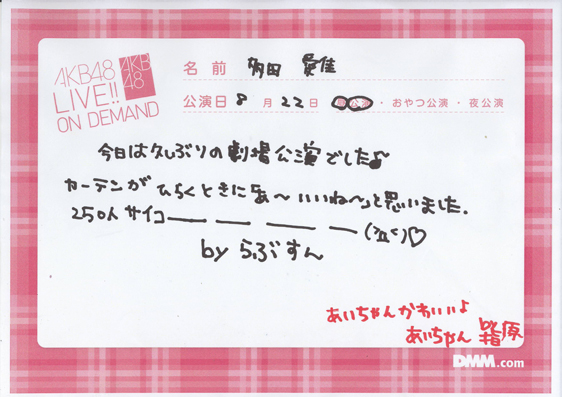 AKB48
LIVE!!
ON DEMAND
AKB
48
名前 多田 愛佳
公演日 8月22日 昼公演・おやつ公演・夜公演
今日は久しぶりの劇場公演でした♪
カーテンがひらくときにあ～いいね～と思いました.
250人サイコー ー ー ー ー
by らぶたん
あいちゃんかわいいよ
あいちゃん by指原
DMM.com